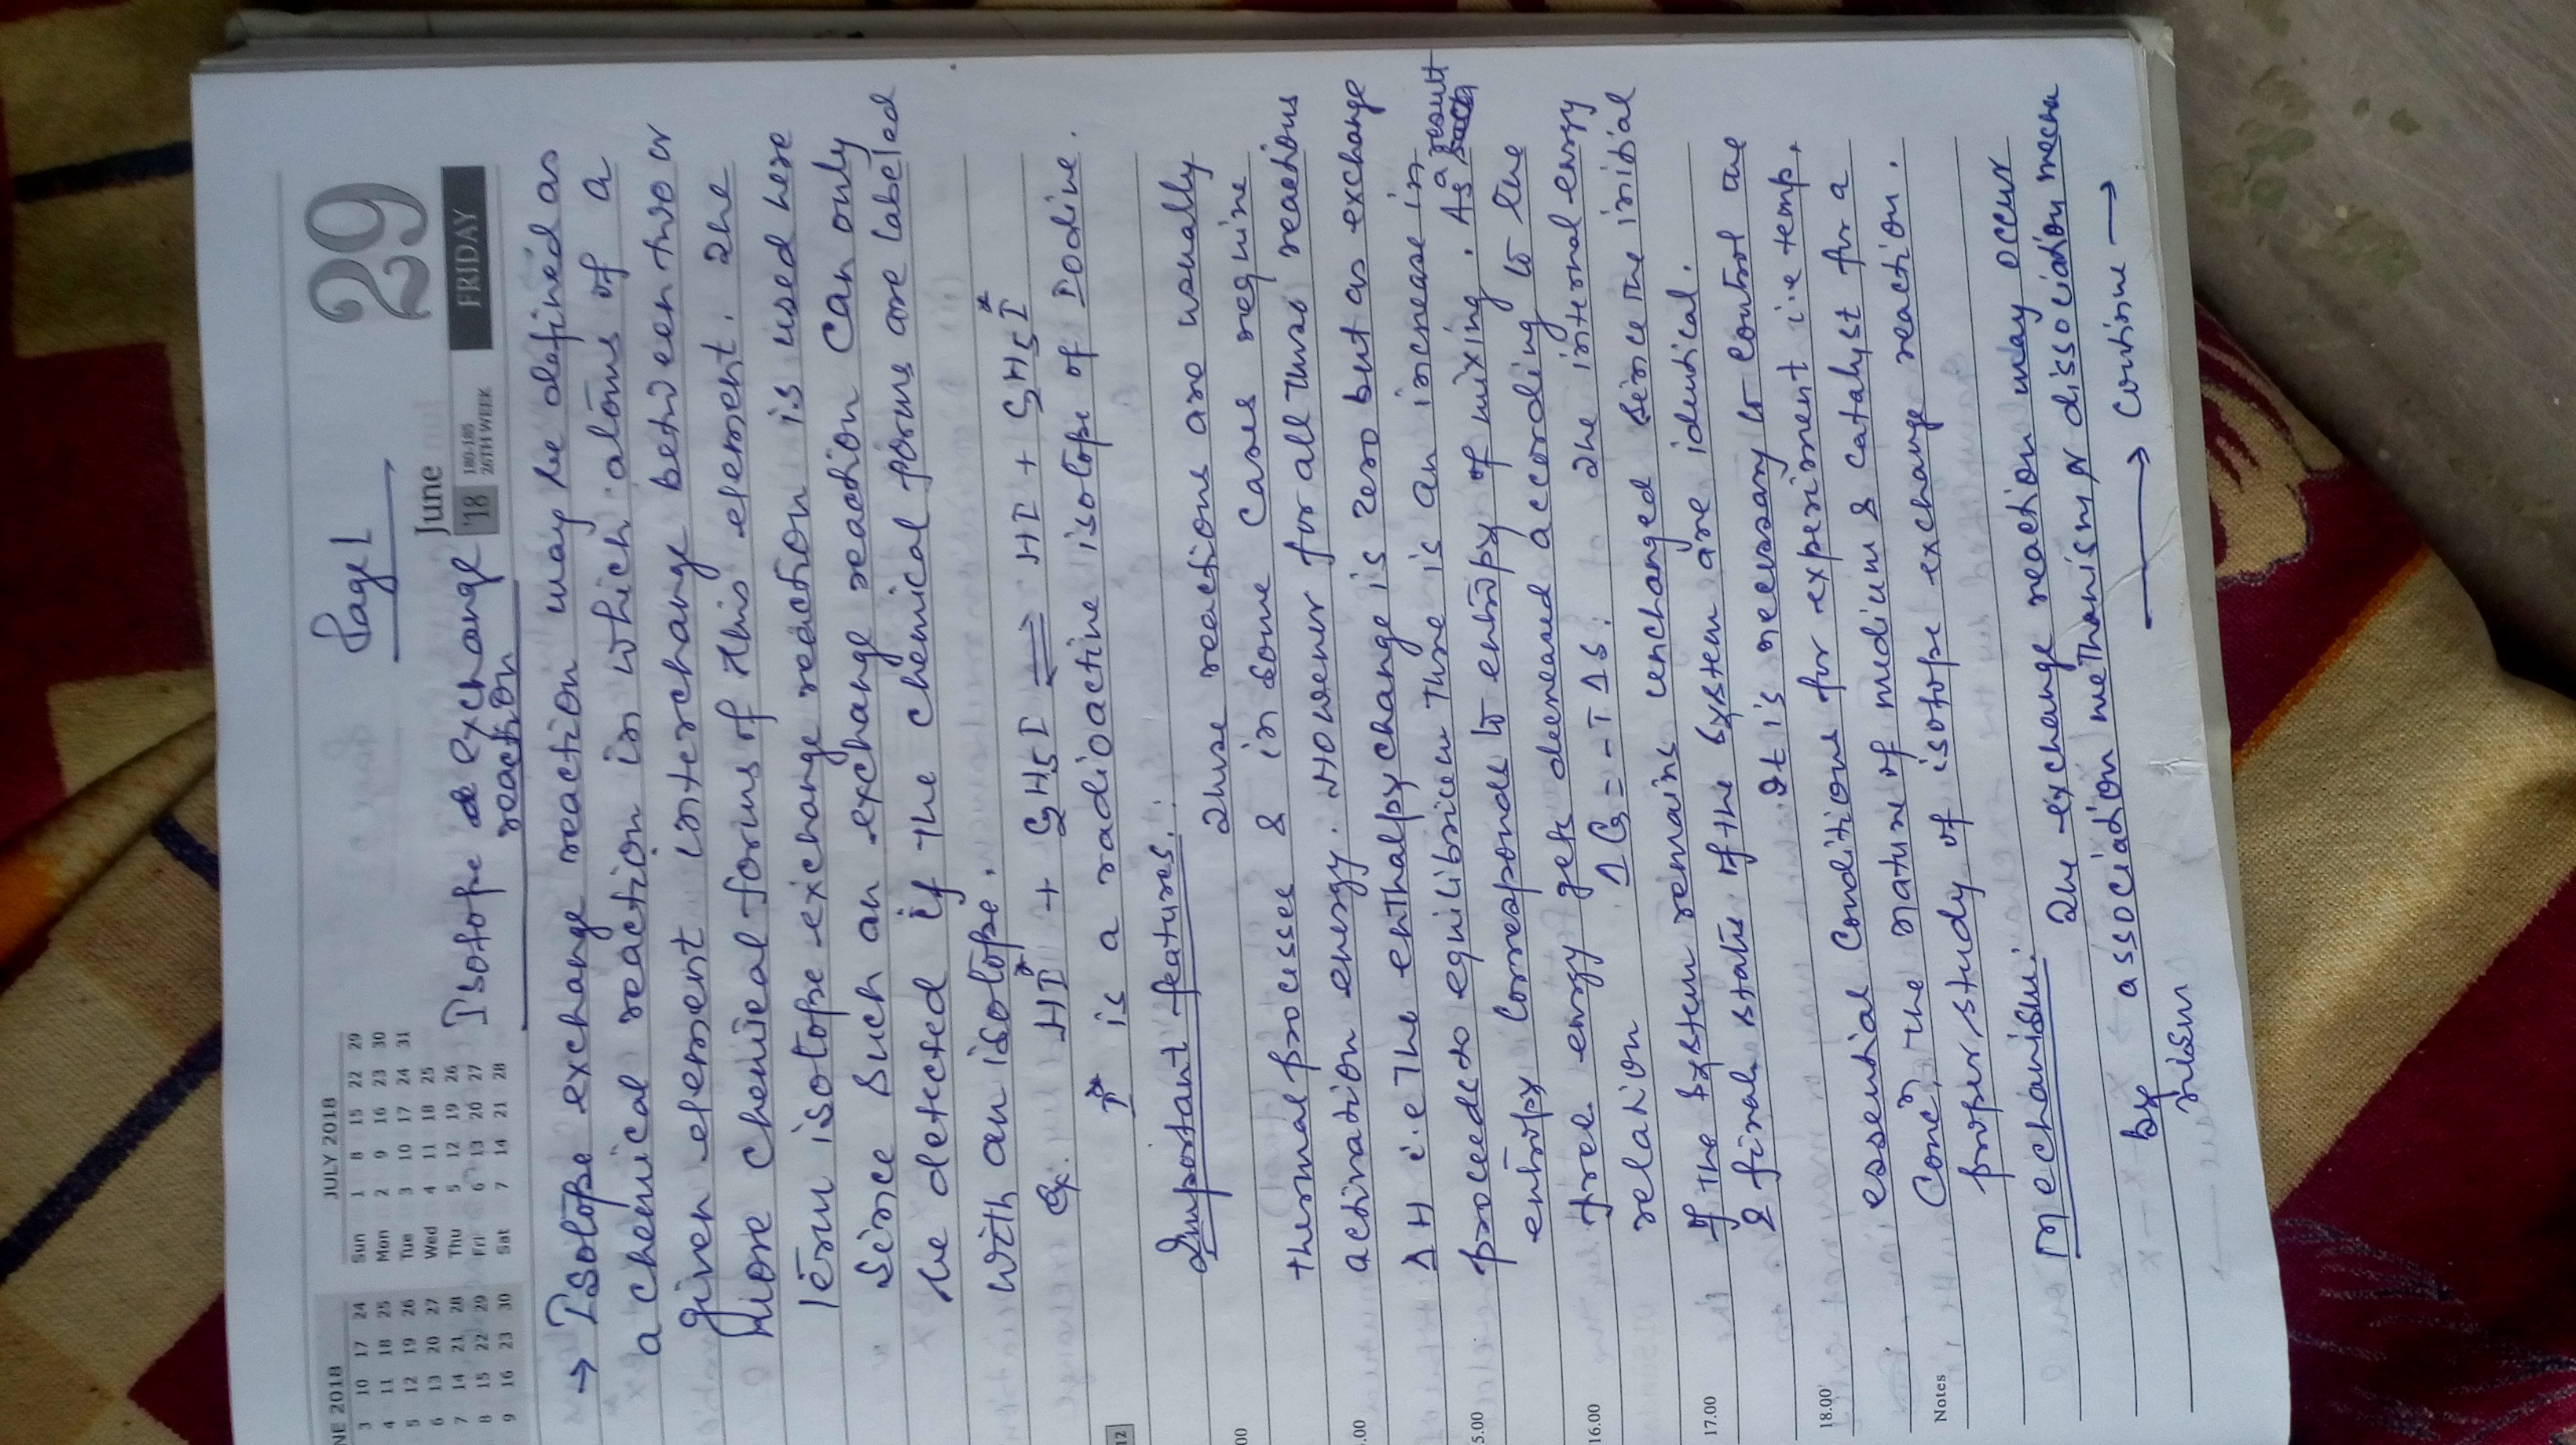 Page 1
29
June
FRIDAY
'18
180-185
26TH WEEK
JULY 2018
Sun 1 8 15 22 29
Mon 2 9 16 23 30
Tue 3 10 17 24 31
Wed 4 11 18 25
Thu 5 12 19 26
Fri 6 13 20 27
Sat 7 14 21 28
NE 2018
3 10 17 24
4 11 18 25
5 12 19 26
6 13 20 27
7 14 21 28
8 15 22 29
9 16 23 30
Isotope exchange
reaction
→ Isotope exchange reaction may be defined as
a chemical reaction in which atoms of a
given element interchange between two or
more chemical forms of this element. The
term isotope exchange reaction is used here
since such an exchange reaction can only
be detected if the chemical forms are labelled
with an isotope.
Ex. HI* + C2H5I ⇌ HI + C2H5I*
I* is a radioactive isotope of Iodine.
12
Important features:
These reactions are usually
00
thermal processes & in some cases require
activation energy. However for all these reactions
.00
ΔH i.e The enthalpy change is zero but as exchange
proceeds to equilibrium there is an increase in
5.00
entropy corresponds to entropy of mixing. As a result
free energy gets decreased according to the
16.00
relation ΔG = -TΔS. The internal energy
of the system remains unchanged since the initial
17.00
& final state of the system are identical.
It is necessary to control the
18.00
essential conditions for experiment i.e temp,
Concn, the nature of medium & catalyst for a
Notes
proper study of isotope exchange reaction.
Mechanism: The exchange reaction may occur
by association mechanism or dissociation mecha
nism
→ Continue →